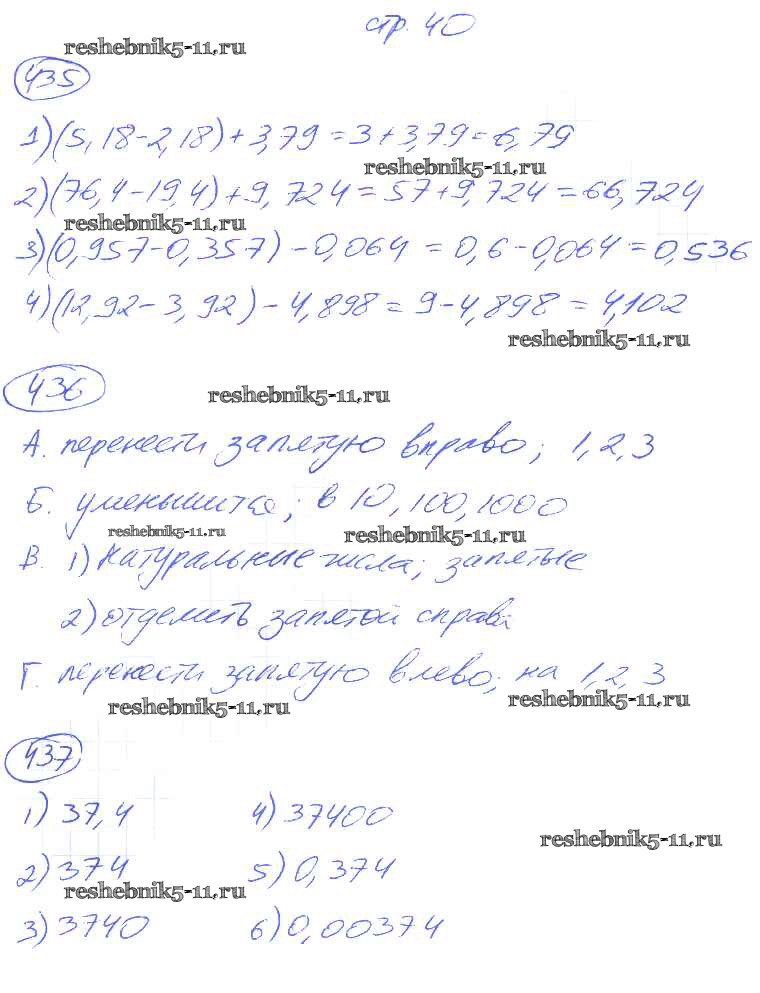 стр. 40
reshebnik5-11.ru
435
1) (5,18-2,18)+3,79=3+3,79=6,79
reshebnik5-11.ru
2) (76,4-19,4)+9,724=57+9,724=66,724
reshebnik5-11.ru
3) (0,957-0,357)-0,064=0,6-0,064=0,536
4) (12,92-3,92)-4,898=9-4,898=4,102
reshebnik5-11.ru
436
reshebnik5-11.ru
А. перенести запятую вправо; 1,2,3
Б. уменьшится; в 10, 100, 1000
reshebnik5-11.ru reshebnik5-11.ru
В. 1) натуральные числа; запятые
2) отделить запятой справа
Г. перенести запятую влево; на 1,2,3
reshebnik5-11.ru reshebnik5-11.ru
437
1) 37,4 4) 37400
reshebnik5-11.ru
2) 374 5) 0,374
reshebnik5-11.ru
3) 3740 6) 0,00374